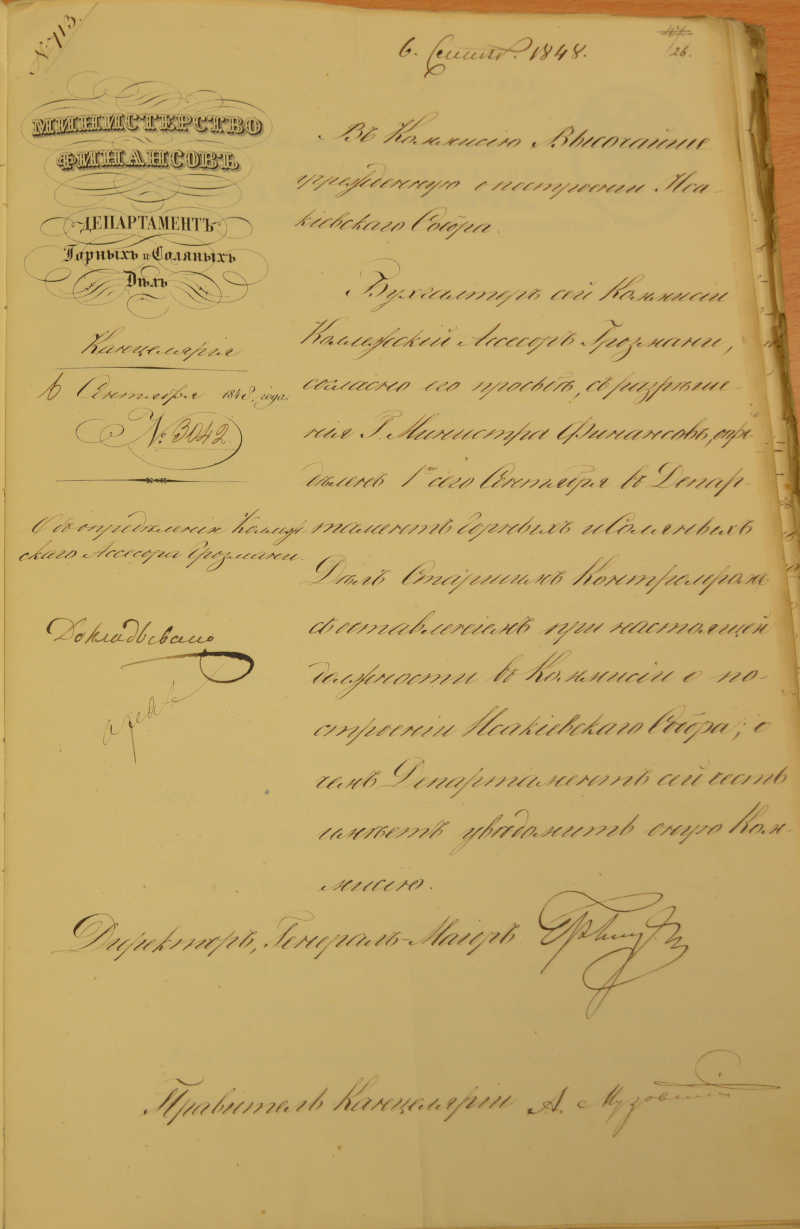 № 713.
6. Сентяб. 1848.
126.
МИНИСТЕРСТВО
ФИНАНСОВЪ
ДЕПАРТАМЕНТЪ
Горныхъ и Соляныхъ
Дѣлъ
Канцелярія
6 Сентября 1848. года.
№ 3042
Объ опредѣленіи Коллеж-
скаго Ассесора Грозмани.
Докладывано
Въ Коммисію Высочайше
учрежденную о построеніи Иса-
кіевскаго Собора.
Бухгалтеръ сей Коммисіи
Коллежскій Ассесоръ Грозмани,
согласно его просьбѣ, съ разрѣше-
нія Г. Министра Финансовъ, опре-
дѣленъ 1го сего Сентября въ Депар-
таментъ Горныхъ и Соляныхъ
Дѣлъ Старшимъ Контролеромъ
съ оставленіемъ при настоящей
должности въ Коммисіи о по-
строеніи Исакіевскаго Собора; о
чемъ Департаментъ сей честь
имѣетъ увѣдомить оную Ком-
мисію.
Директоръ, Генералъ-Маіоръ
Правитель Канцеляріи А.